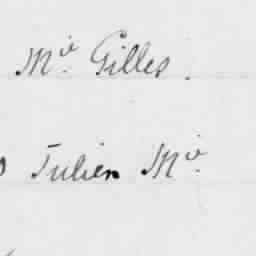 Mie Gilles.
Julien Mie